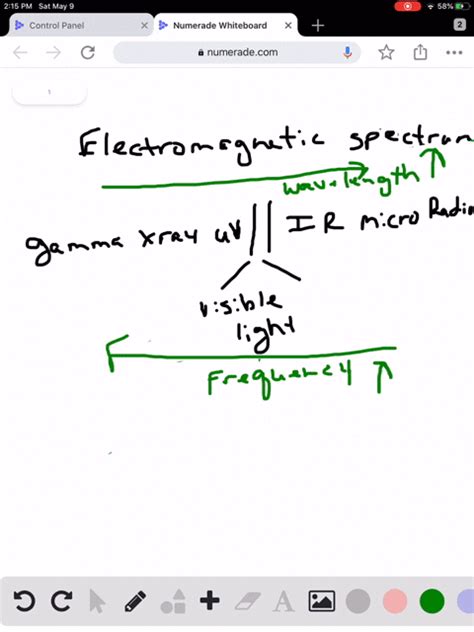 2:15 PM Sat May 9
58%
Control Panel
Numerade Whiteboard
2
numerade.com
1
Electromagnetic spectrum
wavelength
gamma xray uv || IR micro Radio
visible
light
Frequency
A